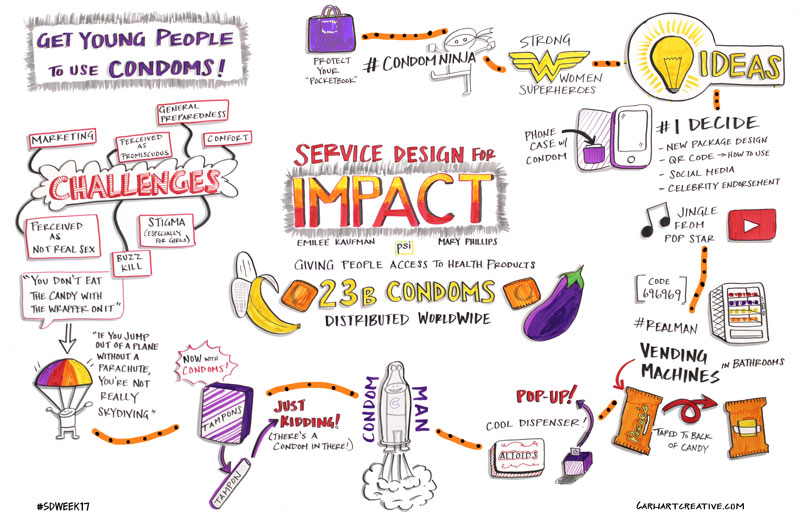 GET YOUNG PEOPLE
TO USE CONDOMS!
MARKETING
GENERAL
PREPAREDNESS
PERCEIVED
AS
PROMISCUOUS
COMFORT
CHALLENGES
PERCEIVED
AS
NOT REAL SEX
BUZZ
KILL
STIGMA
(ESPECIALLY
FOR GIRLS)
"YOU DON'T EAT
THE CANDY WITH
THE WRAPPER ON IT"
"IF YOU JUMP
OUT OF A PLANE
WITHOUT A
PARACHUTE,
YOU'RE NOT
REALLY
SKYDIVING"
NOW WITH
CONDOMS!
TAMPONS
TAMPON
JUST
KIDDING!
(THERE'S A
CONDOM IN THERE!)
CONDOM
MAN
C
POP-UP!
COOL DISPENSER!
ALTOIDS
SERVICE DESIGN FOR
IMPACT
EMILEE KAUFMAN
psi
MARY PHILLIPS
GIVING PEOPLE ACCESS TO HEALTH PRODUCTS
23B CONDOMS
DISTRIBUTED WORLDWIDE
PROTECT
YOUR
"POCKETBOOK"
#CONDOMNINJA
STRONG
WOMEN
SUPERHEROES
IDEAS
PHONE
CASE W/
CONDOM
#I DECIDE
- NEW PACKAGE DESIGN
- QR CODE → HOW TO USE
- SOCIAL MEDIA
- CELEBRITY ENDORSEMENT
JINGLE
FROM
POP STAR
[CODE
696969]
#REALMAN
VENDING
MACHINES IN BATHROOMS
TAPED TO BACK
OF CANDY
#SDWEEK17
CARHARTCREATIVE.COM